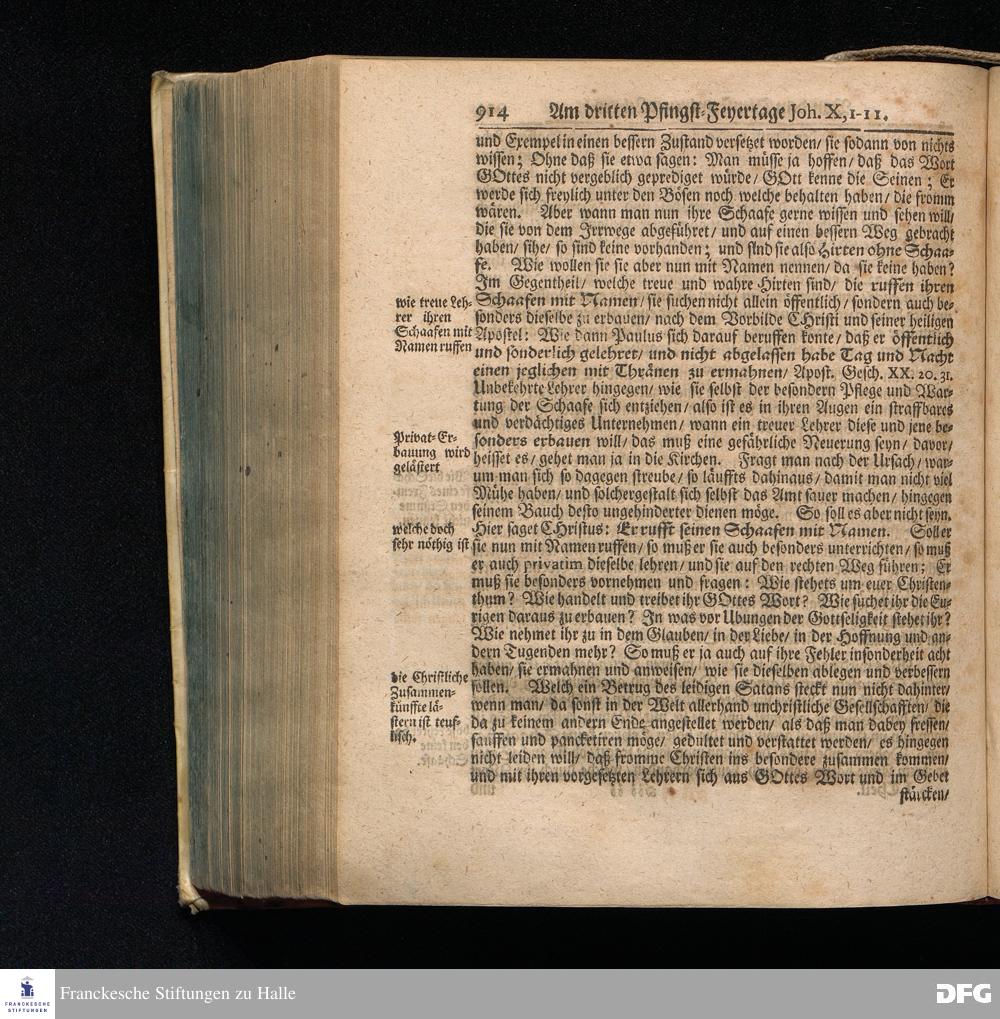 914 Am dritten Pfingst-Feyertage Joh. X, 1-11.
und Exempel in einen bessern Zustand versetzet worden/ sie sodann von nichts
wissen; Ohne daß sie etwa sagen: Man müsse ja hoffen/ daß das Wort
GOttes nicht vergeblich geprediget würde/ GOtt kenne die Seinen; Er
werde sich freylich unter den Bösen noch welche behalten haben/ die fromm
wären. Aber wann man nun ihre Schaafe gerne wissen und sehen will/
die sie von dem Irrwege abgeführet/ und auf einen bessern Weg gebracht
haben/ sihe/ so sind keine vorhanden; und sind sie also Hirten ohne Schaa-
fe. Wie wollen sie sie aber nun mit Namen nennen/ da sie keine haben?
Im Gegentheil/ welche treue und wahre Hirten sind/ die ruffen ihren
Schaafen mit Namen/ sie suchen nicht allein öffentlich/ sondern auch be-
sonders dieselbe zu erbauen/ nach dem Vorbilde CHristi und seiner heiligen
Apostel: Wie dann Paulus sich darauf beruffen konte/ daß er öffentlich
und sonderlich gelehret/ und nicht abgelassen habe Tag und Nacht
einen jeglichen mit Thränen zu ermahnen/ Apost. Gesch. XX. 20. 31.
Unbekehrte Lehrer hingegen/ wie sie selbst der besondern Pflege und War-
tung der Schaafe sich entziehen/ also ist es in ihren Augen ein straffbares
und verdächtiges Unternehmen/ wann ein treuer Lehrer diese und jene be-
sonders erbauen will/ das muß eine gefährliche Neuerung seyn/ davor/
heisset es/ gehet man ja in die Kirchen. Fragt man nach der Ursach/ war-
um man sich so dagegen streube/ so läuffts dahinaus/ damit man nicht viel
Mühe haben/ und solchergestalt sich selbst das Amt sauer machen/ hingegen
seinem Bauch desto ungehinderter dienen möge. So soll es aber nicht seyn.
Hier saget CHristus: Er rufft seinen Schaafen mit Namen. Soll er
sie nun mit Namen ruffen/ so muß er sie auch besonders unterrichten/ so muß
er auch privatim dieselbe lehren/ und sie auf den rechten Weg führen; Er
muß sie besonders vornehmen und fragen: Wie stehets um euer Christen-
thum? Wie handelt und treibet ihr GOttes Wort? Wie suchet ihr die Eu-
rigen daraus zu erbauen? In was vor Ubungen der Gottseligkeit stehet ihr?
Wie nehmet ihr zu in dem Glauben/ in der Liebe/ in der Hoffnung und an-
dern Tugenden mehr? So muß er ja auch auf ihre Fehler insonderheit acht
haben/ sie ermahnen und anweisen/ wie sie dieselben ablegen und verbessern
sollen. Welch ein Betrug des leidigen Satans steckt nun nicht dahinter/
wenn man/ da sonst in der Welt allerhand unchristliche Gesellschafften/ die
da zu keinem andern Ende angestellet werden/ als daß man dabey fressen/
sauffen und pancketiren möge/ gedultet und verstattet werden/ es hingegen
nicht leiden will/ daß fromme Christen ins besondere zusammen kommen/
und mit ihren vorgesetzten Lehrern sich aus GOttes Wort und im Gebet
stärcken/
wie treue Leh-
rer ihren
Schaafen mit
Namen ruffen
Privat-Er-
bauung wird
gelästert
welche doch
sehr nöthig ist
die Christliche
Zusammen-
künffte lä-
stern ist teuf-
lisch.
FRANCKESCHE
STIFTUNGEN
Franckesche Stiftungen zu Halle
DFG